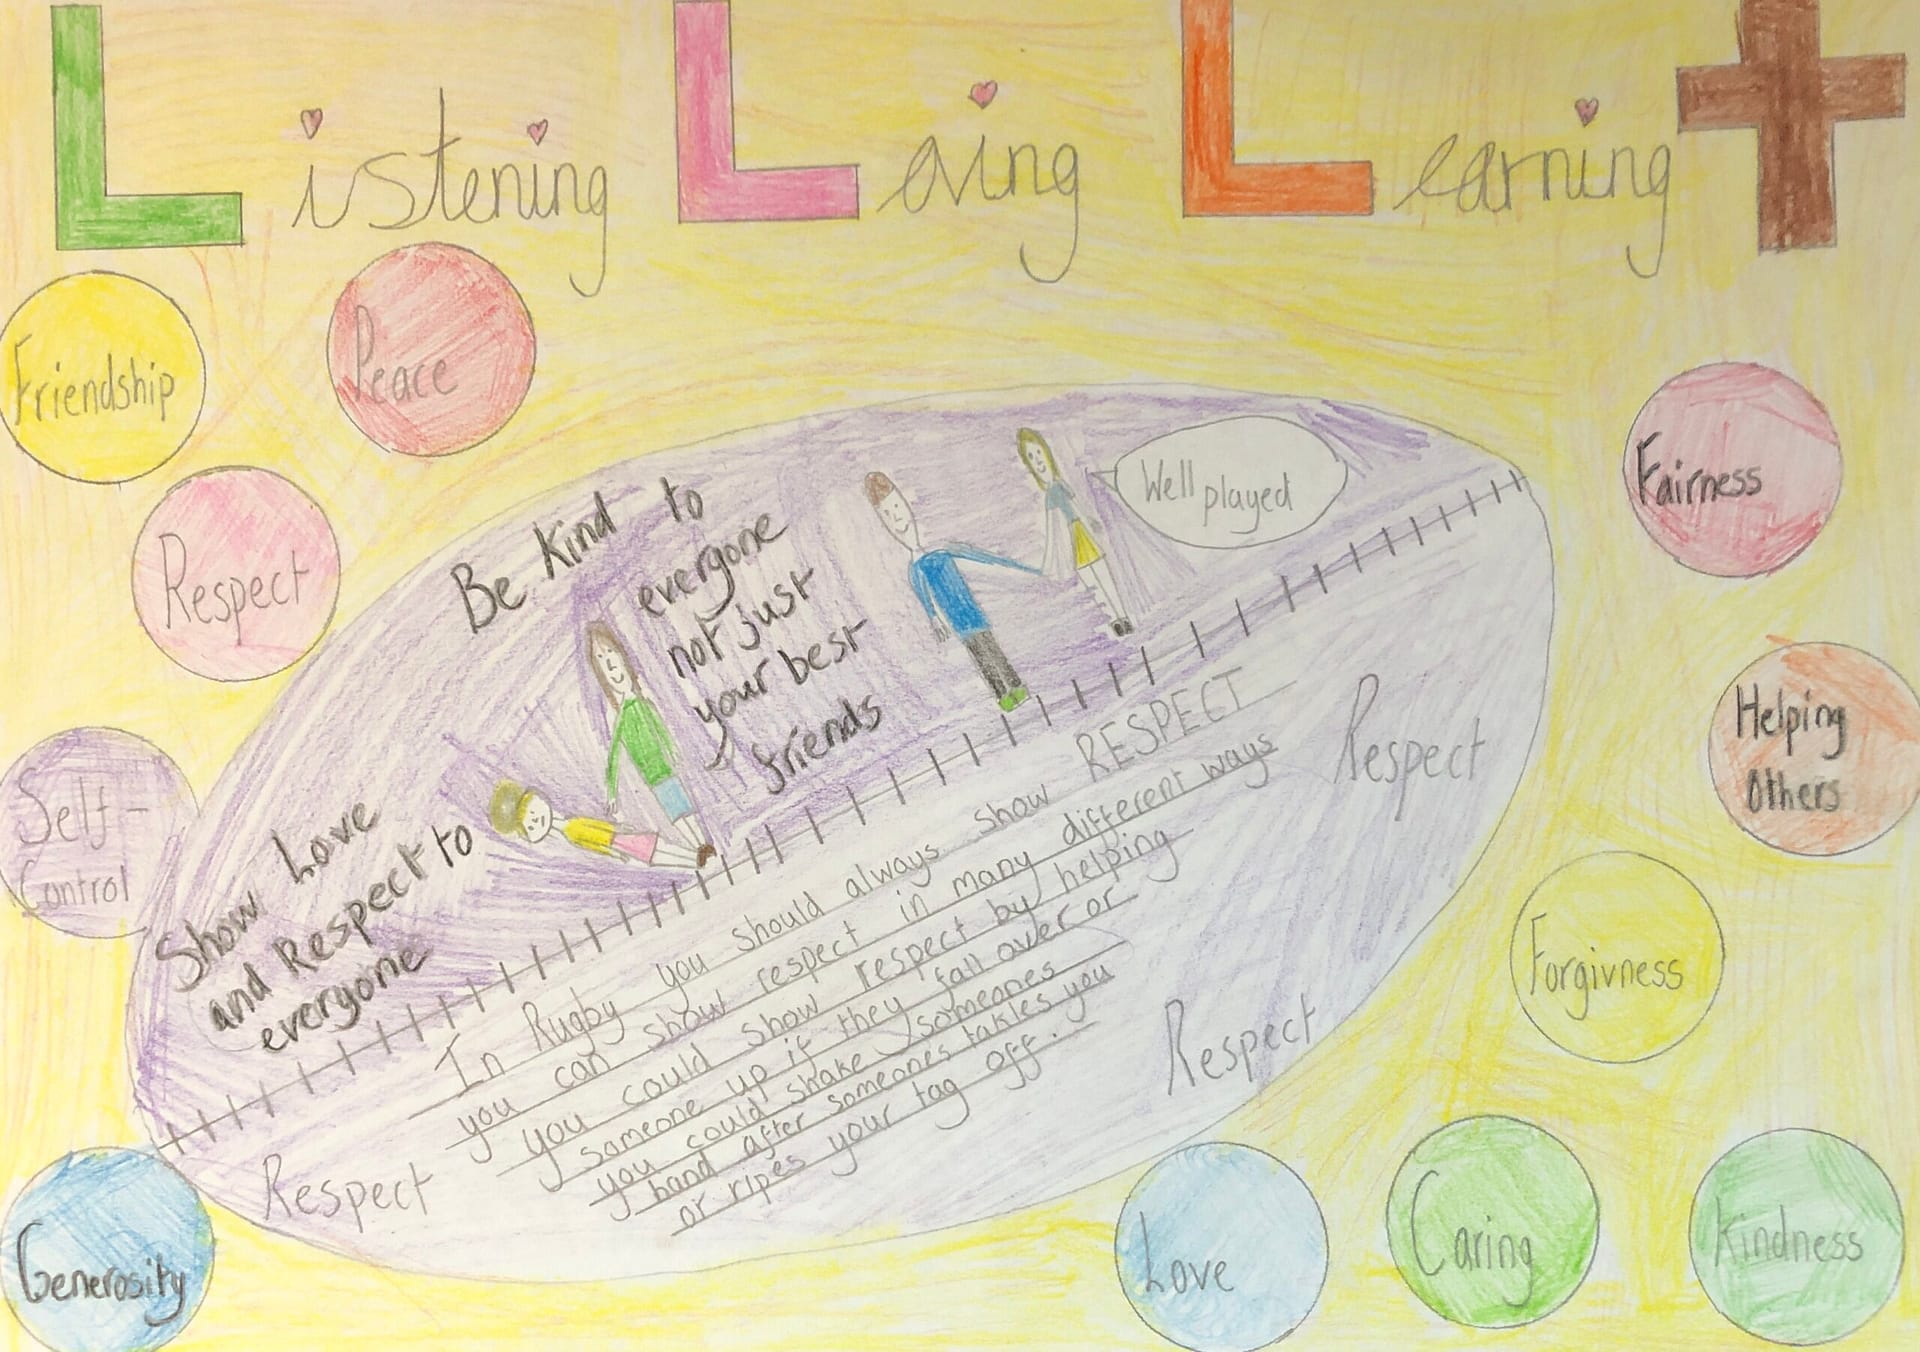 Listening Loving Learning
Friendship
Peace
Respect
Self-
Control
Generosity
Fairness
Helping
Others
Forgivness
Love
Caring
Kindness
Be Kind to
everyone
not just
your best
friends
Well played
Show Love
and Respect to
everyone
In Rugby you should always show RESPECT
you can show respect in many different ways
you could show respect by helping
someone up if they fall over or
you could shake someones
hand after someones takles you
or ripes your tag off.
Respect
Respect
Respect